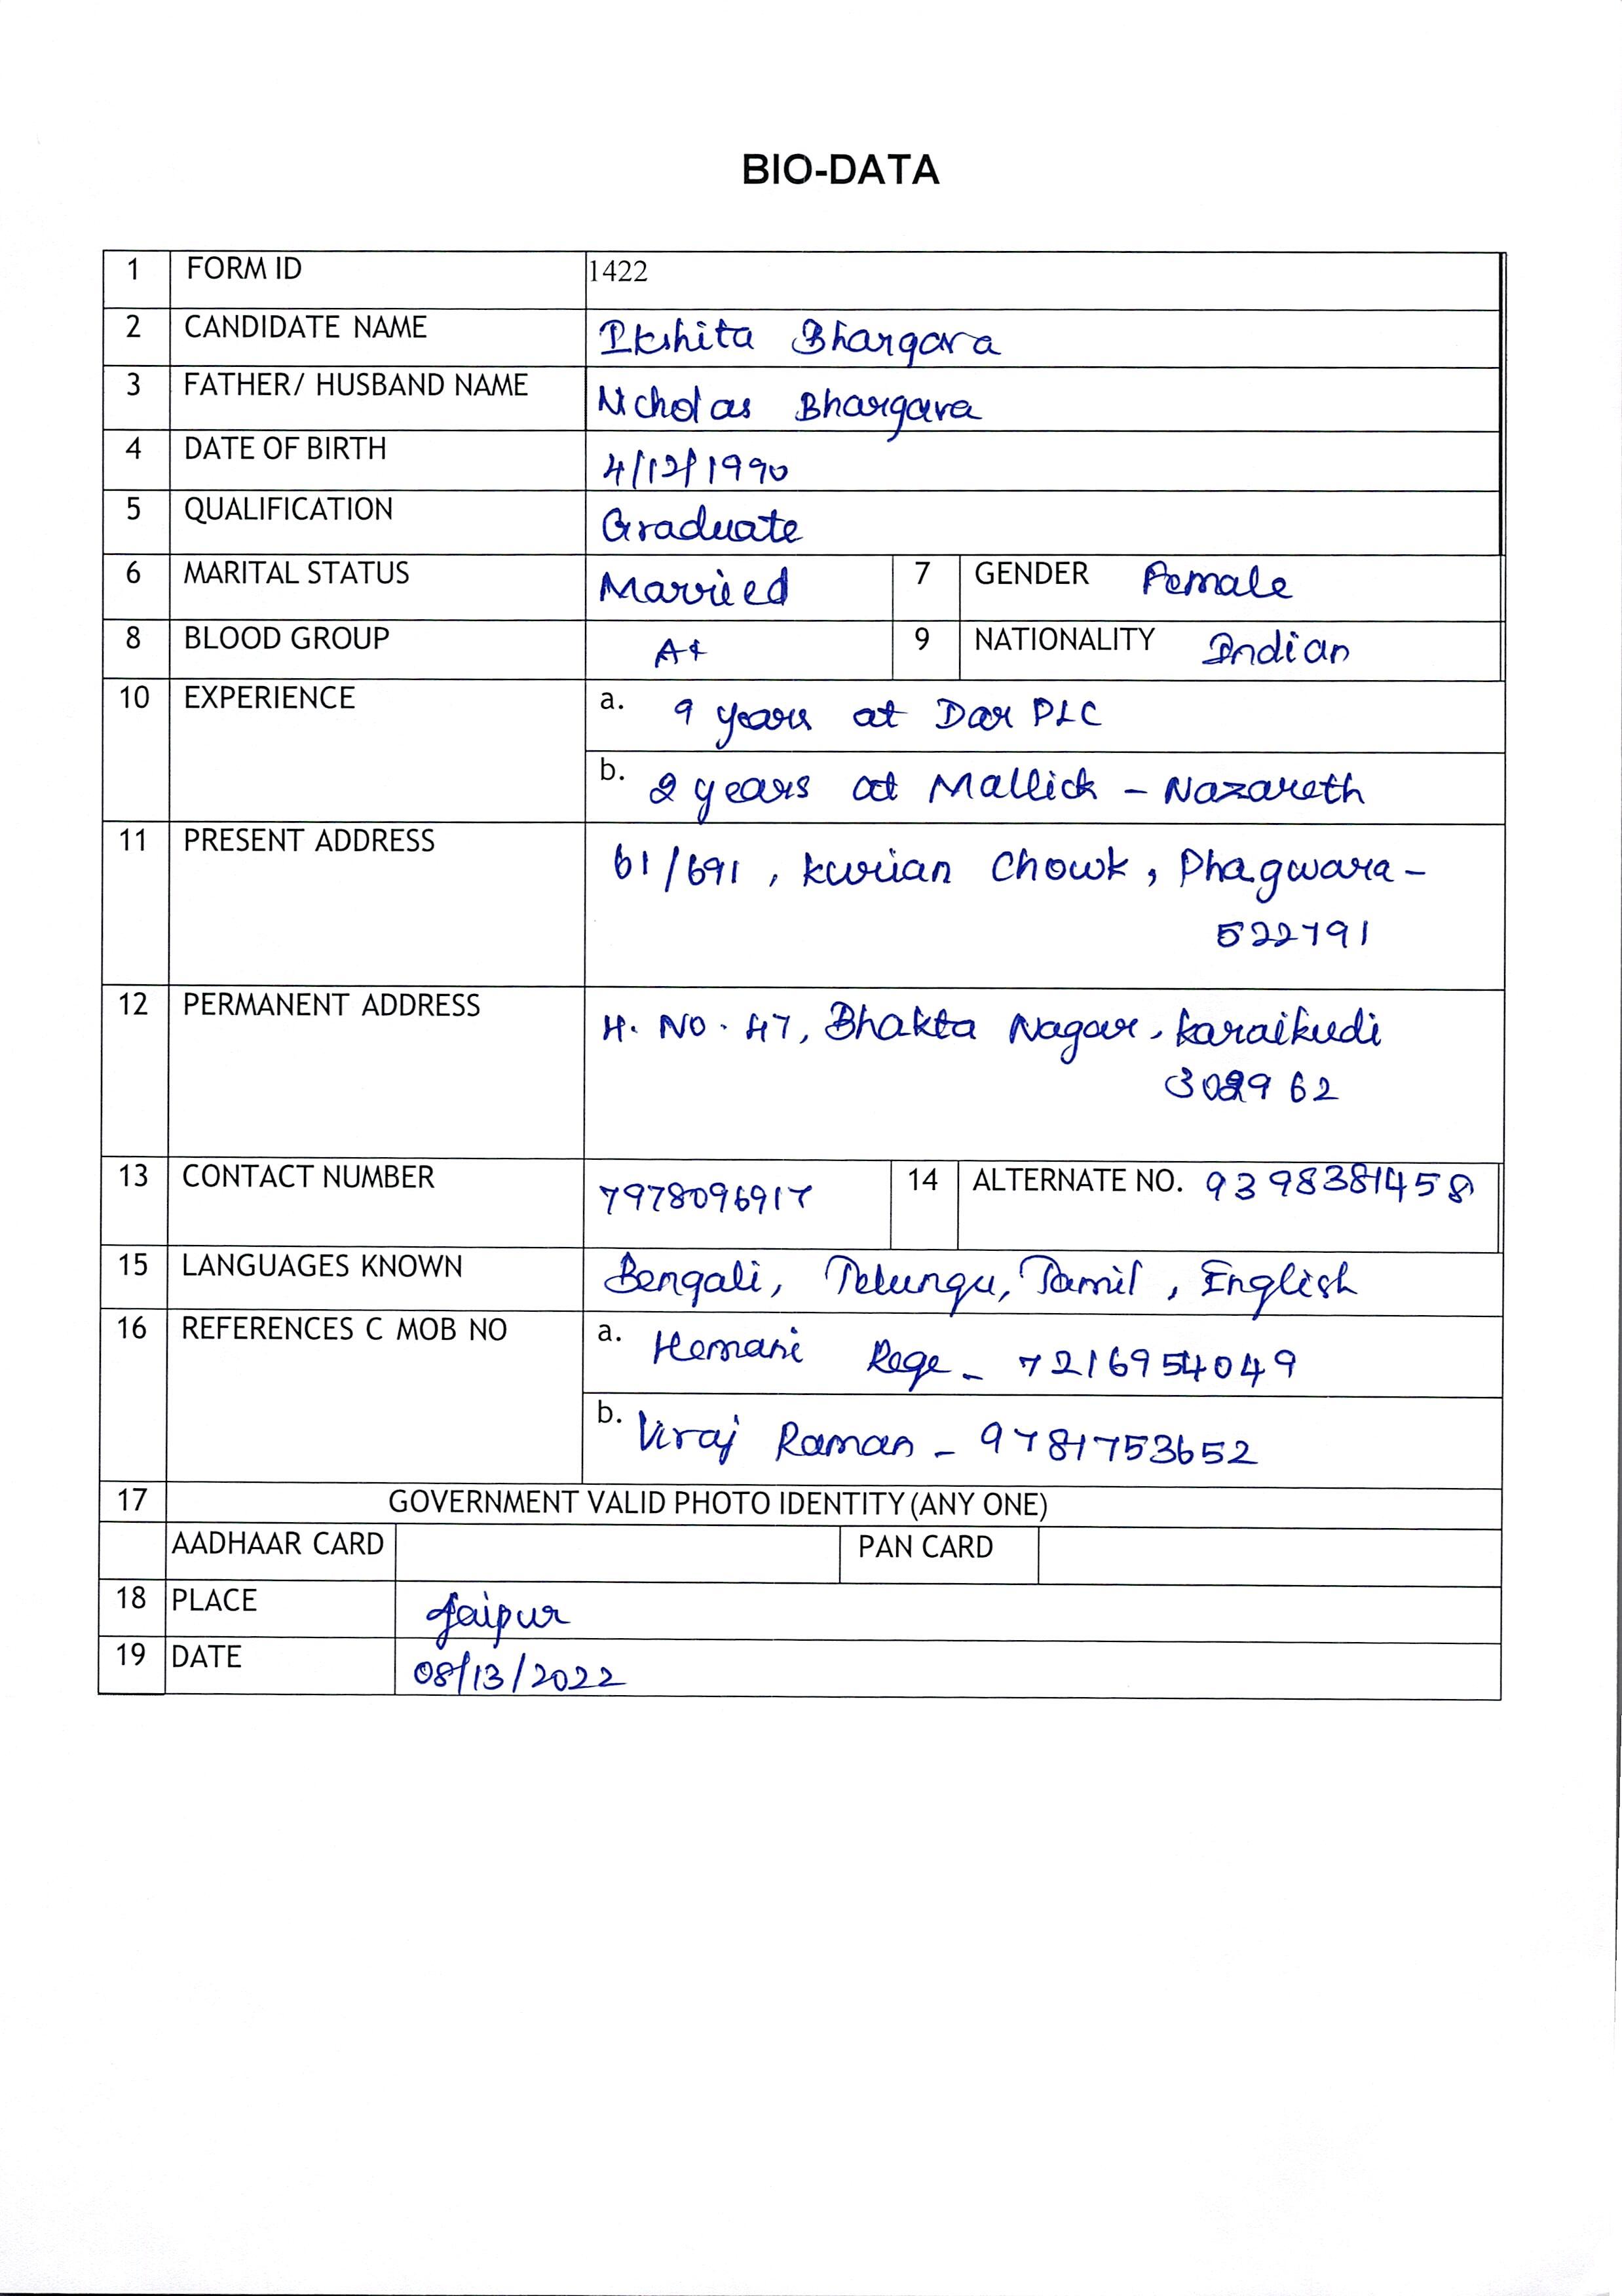 BIO-DATA
1 FORM ID 1422
2 CANDIDATE NAME Ikshita Bhargava
3 FATHER/ HUSBAND NAME Nicholas Bhargava
4 DATE OF BIRTH 4/12/1990
5 QUALIFICATION Graduate
6 MARITAL STATUS Married 7 GENDER Female
8 BLOOD GROUP A+ 9 NATIONALITY Indian
10 EXPERIENCE a. 9 years at Dar PLC
b. 2 years at Mallick - Nazareth
11 PRESENT ADDRESS 61/691, Kurian Chowk, Phagwara -
522791
12 PERMANENT ADDRESS H. No. 47, Bhakta Nagar, Karaikudi
13 CONTACT NUMBER 7978096917 14 ALTERNATE NO. 9398381458
15 LANGUAGES KNOWN Bengali, Telungu, Tamil, English
16 REFERENCES C MOB NO a. Hemani Rege - 7216954049
b. Viraj Raman - 9781753652
17 GOVERNMENT VALID PHOTO IDENTITY (ANY ONE)
AADHAAR CARD PAN CARD
18 PLACE Jaipur
19 DATE 08/13/2022